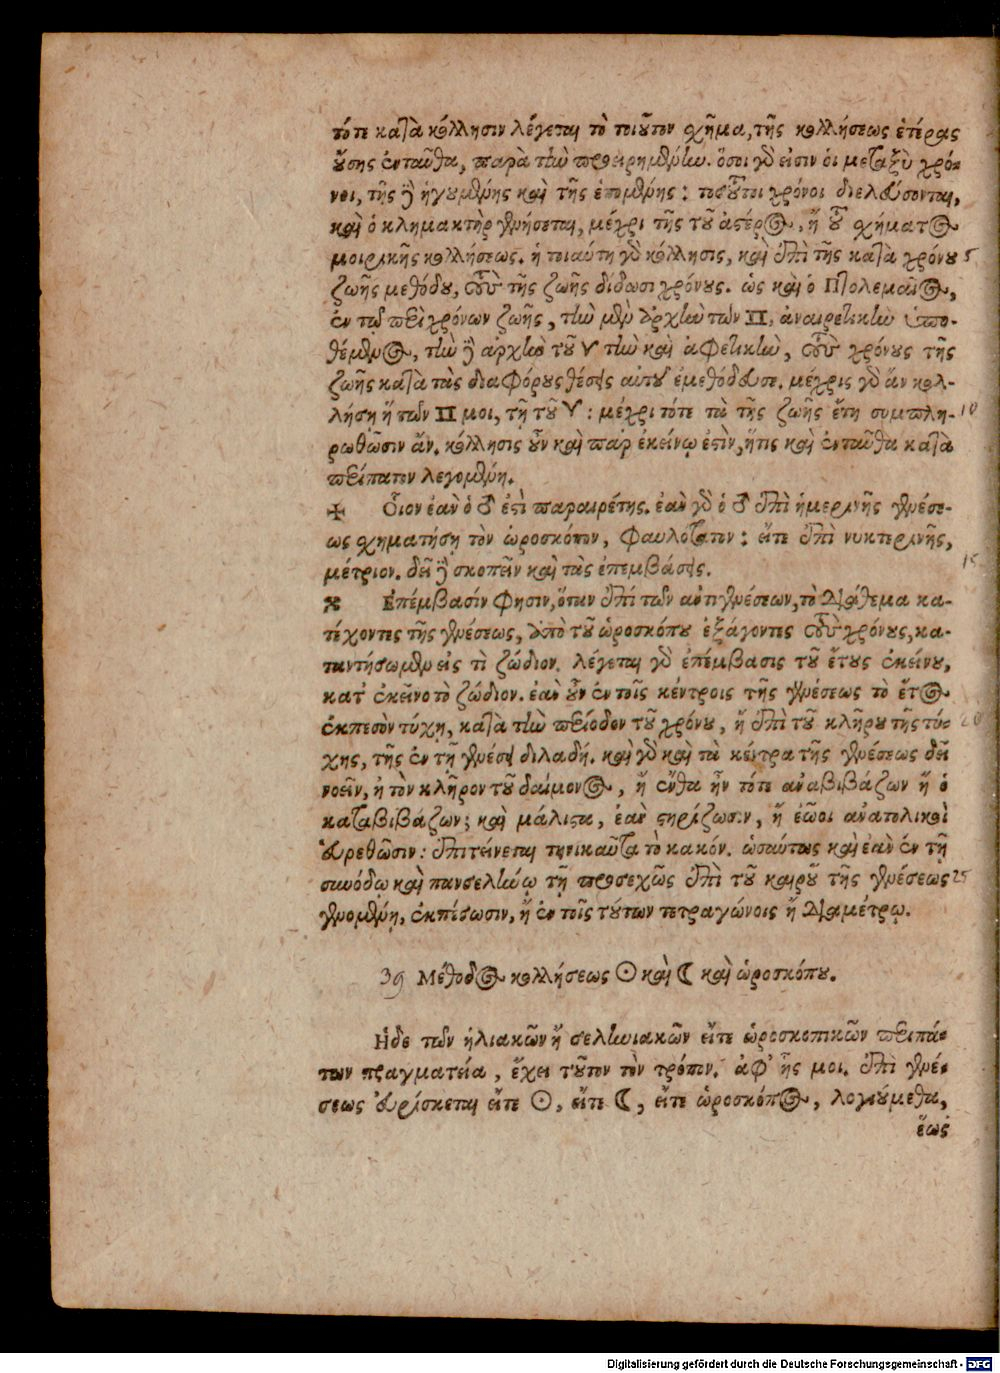 τότε κατὰ κόλλησιν λέγεται τὸ τοιοῦτον σχῆμα, τῆς κολλήσεως ἑτέρας
οὔσης ἐνταῦθα, παρὰ τὴν προειρημένην. ὅσοι γὸ εἰσιν ὁι μεταξὺ χρό-
νοι, τῆς δὲ ἡγουμένης καὶ τῆς ἑπομένης : τοσοῦτοι χρόνοι διελεύσονται,
καὶ ὁ κλημακτὴρ γενήσεται, μέχρι τῆς τοῦ ἀστέρος, ἢ τοῦ σχήματος
μοιρικῆς κολλήσεως. ἡ τοιαύτη γὸ κόλλησις, καὶ ἐπὶ τῆς κατὰ χρόνου 5
ζωῆς μεθόδου, τοὺς τῆς ζωῆς δίδωσι χρόνους. ὡς καὶ ὁ Πτολεμαῖος,
ἐν τῷ περὶ χρόνων ζωῆς, τὴν μὲν ἀρχὴν τῶν ♊, ἀναιρετικὴν ὑπο-
θέμενος, τὴν δὲ ἀρχὴν τοῦ ♈ τὴν καὶ ἀφετικὴν, τοὺς χρόνους τῆς
ζωῆς κατὰ τὰς διαφόρους θέσεις αὐτοῦ ἐμεθόδευσε. μέχρις γὸ ἄν κολ-
λήση ἥ τῶν ♊ μοι, τῇ τοῦ ♈ : μέχρι τότε τὰ τῆς ζωῆς ἔτη συμπλη- 10
ρωθῶσιν ἄν. κόλλησις οὖν καὶ παρ ἐκείνῳ ἐστὶν, ἥτις καὶ ἐνταῦθα κατὰ
περίπατον λεγομένη.
✠ Οἷον ἐὰν ὁ ♂ ἐστὶ παραιρέτης. ἐὰν γὸ ὁ ♂ ἐπὶ ἡμερινῆς γενέσε-
ως σχηματήσῃ τὸν ὡροσκόπον, φαυλότατον : εἴτε ἐπὶ νυκτερινῆς,
μέτριον. δεῖ δὲ σκοπεῖν καὶ τὰς ἐπεμβάσεις. 15
Ἐπέμβασίν φησιν, ὅταν ἐπί τῶν ἀντιγενέσεων, τὸ διάθεμα κα-
τέχοντες τῆς γενέσεως, ἀπὸ τοῦ ὡροσκόπου ἐξάγοντες τοὺς χρόνους, κα-
ταντήσωμεν εἰς τὶ ζώδιον. λέγεται γὸ ἐπέμβασις τοῦ ἔτους ἐκείνου,
κατ' ἐκεῖνο τὸ ζώδιον. ἐὰν οὖν ἐν τοῖς κέντροις τῆς γενέσεως τὸ ἔτος
ἐκπεσὸν τύχῃ, κατὰ τὴν περίοδον τοῦ χρόνου, ἢ ἐπὶ τοῦ κλήρου τῆς τύ- 20
χης, τῆς ἐν τῇ γενέσει διλαδή. καὶ γὸ καὶ τὰ κέντρα τῆς γενέσεως δεῖ
νοεῖν, ἠ τὸν κλῆρον τοῦ δαίμονος, ἢ ἔνθα ἦν τότε ἀναβιβάζων ἢ ὁ
καταβιβάζων; καὶ μάλιστα, ἐὰν στηρίζωσιν, ἢ ἑῶοι ἀνατολικοὶ
εὑρεθῶσιν : ἐπιτείνεται τηνικαῦτα τὸ κακόν. ὡσαύτως καὶ ἐὰν ἐν τῇ
συνόδῳ καὶ πανσελήνῳ τῇ προσεχῶς ἐπὶ τοῦ καιροῦ τῆς γενέσεως 25
γενομένη, ἐκπέσωσιν, ἢ ἐν τοῖς τούτων τετραγώνοις ἢ διαμέτρῳ.
39 Μέθοδος κολλήσεως ☉ καὶ ☾ καὶ ὡροσκόπου.
Ἡδε τῶν ἡλιακῶν ἢ σεληνιακῶν εἴτε ὡροσκοπικῶν περιπά-
των πραγματεία, ἔχει τοῦτον τὸν τρόπον. ἀφ' ἧς μοι. ἐπὶ γενέ-
σεως εὑρίσκεται εἴτε ☉, εἴτε ☾, εἴτε ὡροσκόπος, λογιούμεθα,
ἕως
Digitalisierung gefördert durch die Deutsche Forschungsgemeinschaft - DFG